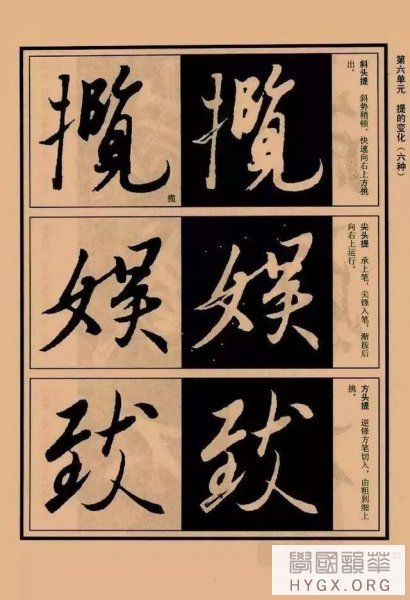 第六单元　提的变化（六种）
斜头提　斜势稍顿，快速向右上方挑
出。
攬
攬
揽
尖头提　承上笔，尖锋入笔，渐按后
向右上运行。
娱
娱
方头提　逆锋方笔切入，由粗到细上
挑。
致
致
學國韻華
HYGX.ORG